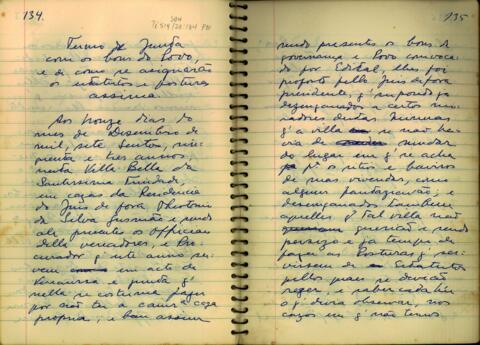 134.
Termo de Junta
com os bons do Povo,
e de como se asignarão
os estatutos e posturas
assima.
Aos honze dias do
mes de Dezembro de
mil, sete Sentos, sin-
coenta e tres annos,
nesta Villa Bella da
Santissima Trindade,
em cazas da Rezidencia
do Juis de fora Theotonio
da Silva Gusmão e sendo
ali prezente os Officiaes
della vereadores, e Pro-
curador q' este anno ser-
vem em acto de
Vereanssa e junta q'
nella se costuma fazer
por não ter a camra caza
propria; e bem assim
135
sendo presentes os bons da
governança e Povo convoca-
do por Edital, lhes foi
proposto pello Juis de fora
prezidente, q' suposto ja
dezenganados a certos mo-
radores destas Minnas
q' a villa se não ha-
via de mudar
do lugar em q' se acha
pª os sitios e bairros
de suas vivendas, como
alguns fantaziavão; e
dezenganados tambem
aquelles q' tal villa não
querião e sendo
persizo e ja tempo de
fazer as Posturas q' ser-
vissem de Estatutos
pellos quaes se devião
reger, e saber cada hũ
o q' devia observar, nos
cazos em q' não temos